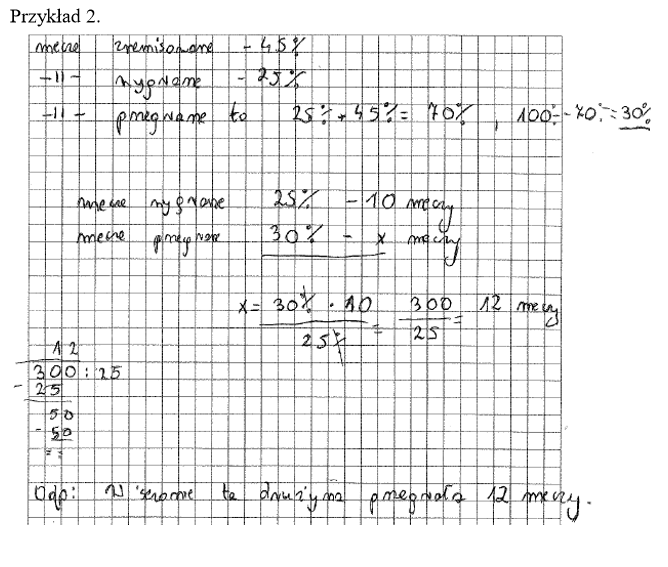 Przykład 2.
mecze zremisowane - 45%
-11- wygrane - 25%
-11- przegrane to 25% + 45% = 70% , 100% - 70% = 30%
mecze wygrane 25% - 10 meczy
mecze przegrane 30% - x meczy
x = 30% · 10 / 25% = 300 / 25 = 12 meczy
12
300 : 25
- 25
50
- 50
= =
Odp: W sezonie ta drużyna przegrała 12 meczy.